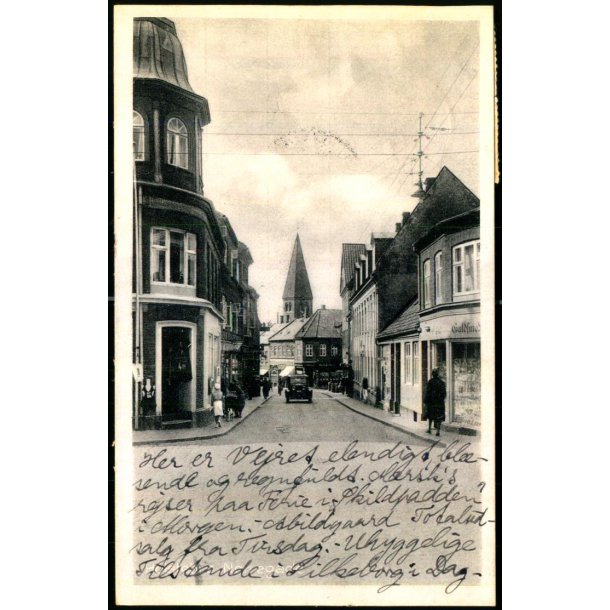 Guldsmed
Her er Vejret elendigt, blæ-
sende og regnfuldt. Mærsk's
rejser paa Ferie i "Skildpadden"
i Morgen. - Abildgaard Totalud-
salg fra Tirsdag. - Uhyggelige
Tilstande i Silkeborg i Dag -